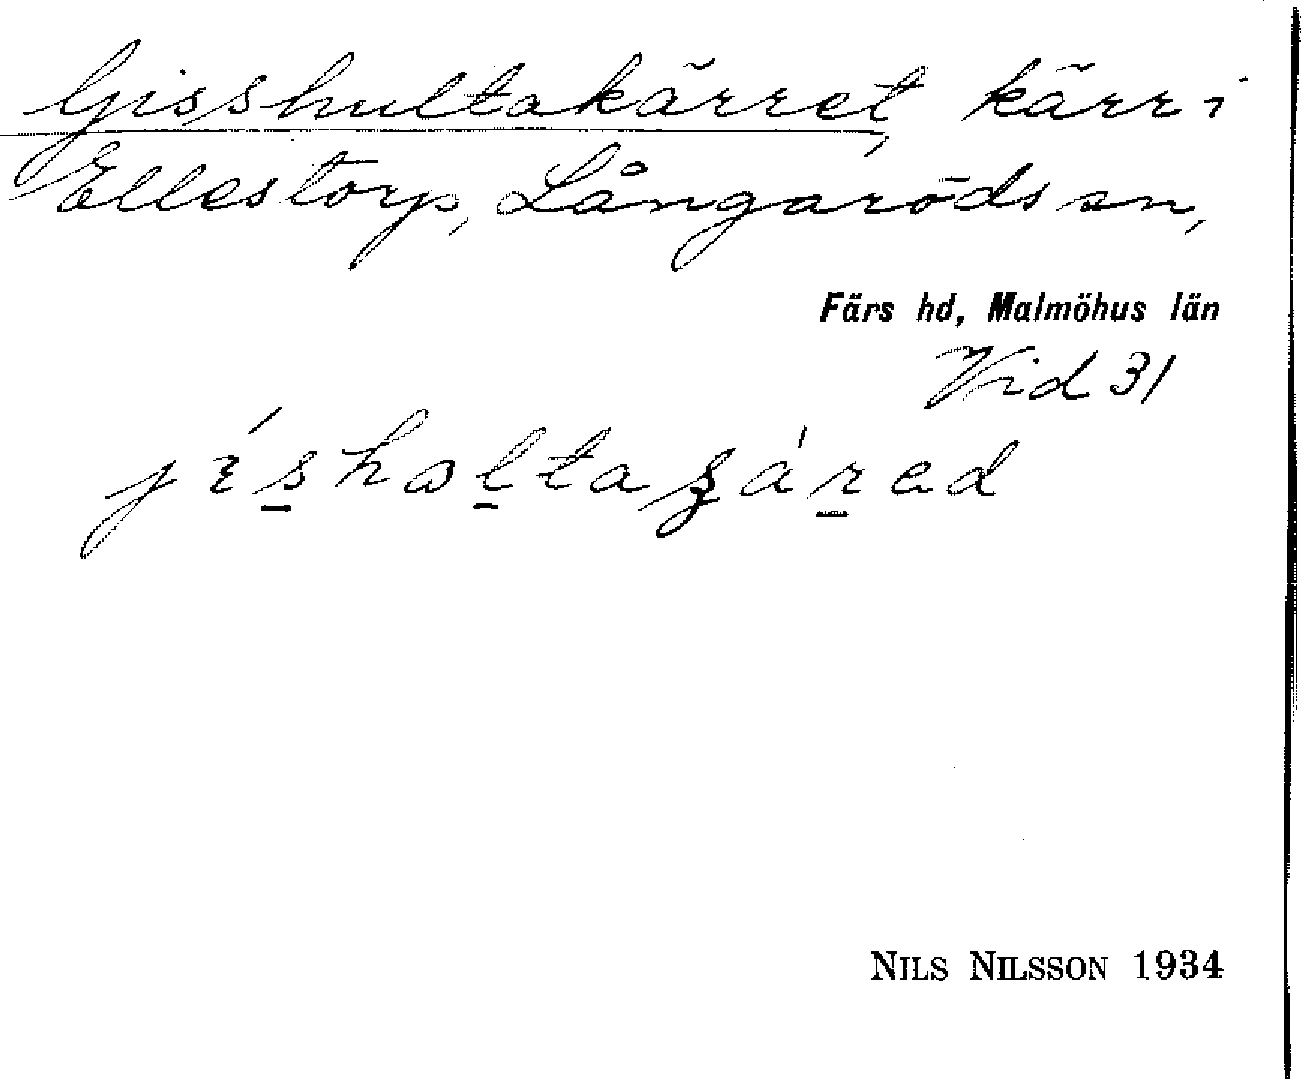 Gisshultakärret, kärr i
Ellestorp, Långaröds sn,
Färs hd, Malmöhus län
Vid 31
NILS NILSSON 1934